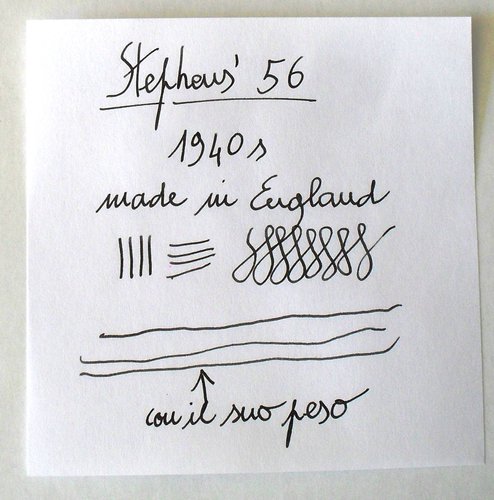 Stephens' 56
1940s
made in England
con il suo peso